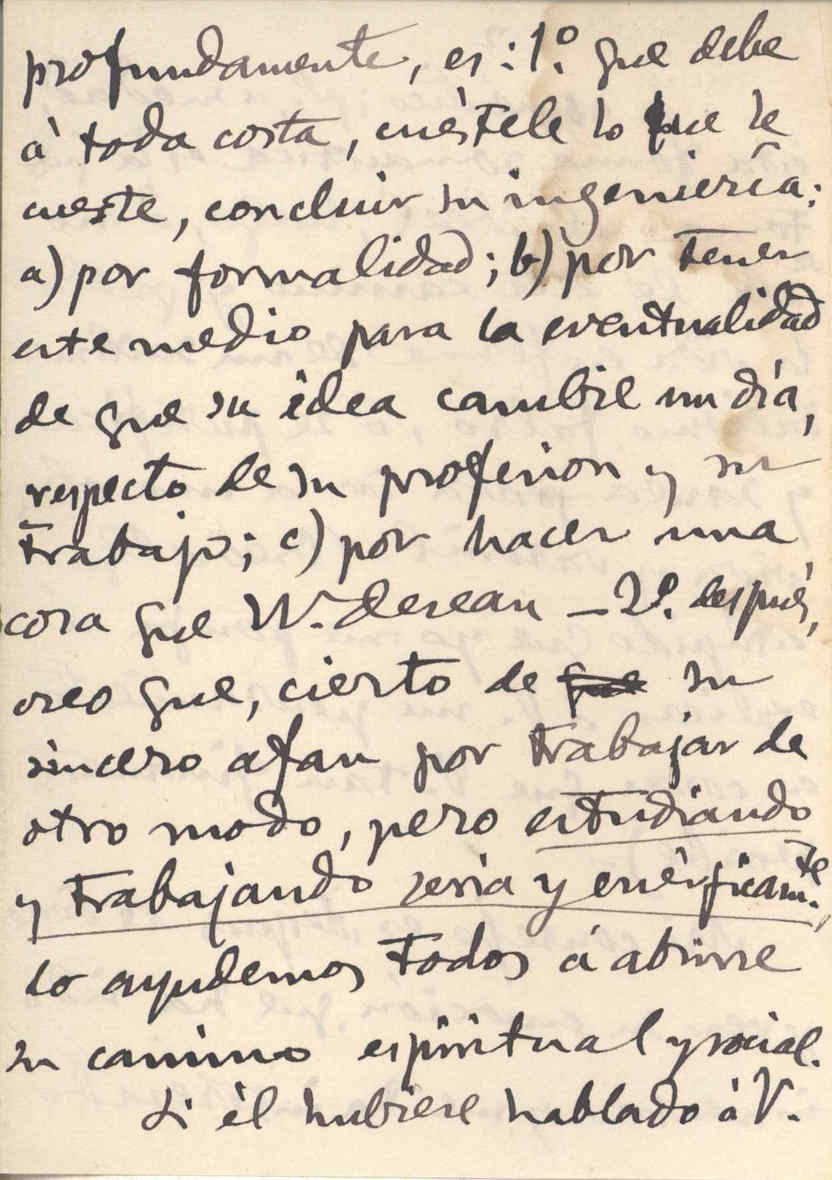 profundamente, es: 1º. que debe
á toda costa, cuéstele lo que le
cueste, concluir su ingeniería:
a) por formalidad; b) por tener
este medio para la eventualidad
de que su idea cambie un día,
respecto de su profesion y su
trabajo; c) por hacer una
cosa que W. desean – 2º. después,
creo que, cierto de que su
sincero afan por trabajar de
otro modo, pero estudiando
y trabajando seria y enérgicamte.,
lo ayudemos todos á abrirse
su camino espiritual y social.
Si él hubiese hablado á V.